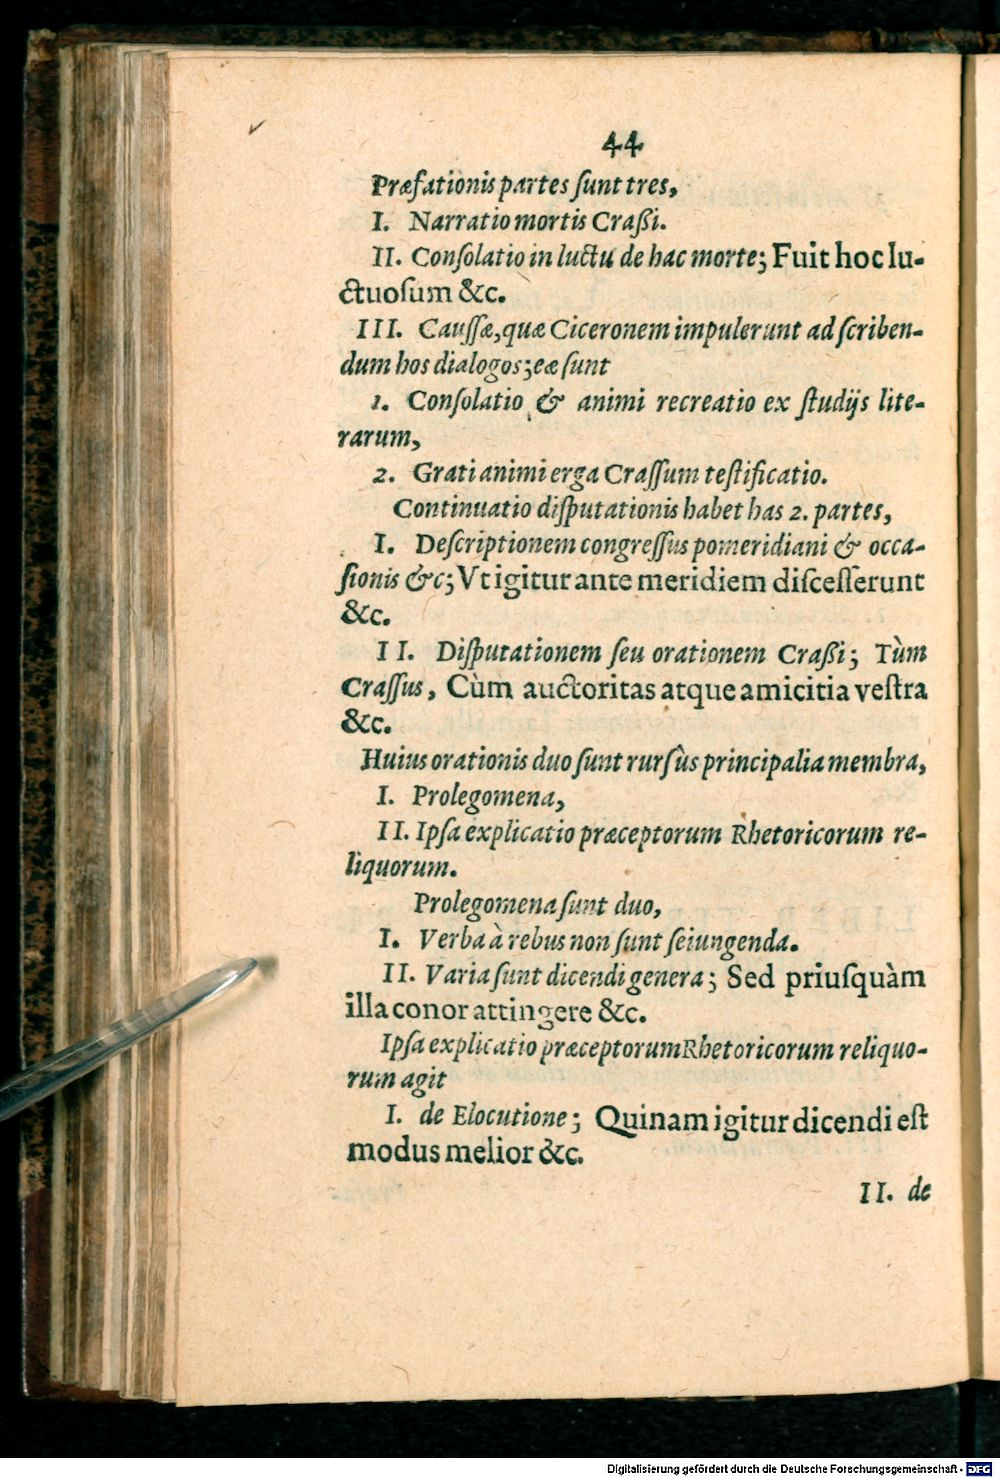 44
Præfationis partes ſunt tres,
I. Narratio mortis Craßi.
II. Conſolatio in luctu de hac morte; Fuit hoc lu-
ctuoſum &c.
III. Cauſſæ, quæ Ciceronem impulerunt ad ſcriben-
dum hos dialogos; eæ ſunt
1. Conſolatio & animi recreatio ex ſtudijs lite-
rarum,
2. Grati animi erga Craſſum teſtificatio.
Continuatio diſputationis habet has 2. partes,
I. Deſcriptionem congreſſus pomeridiani & occa-
ſionis &c; Vt igitur ante meridiem diſceſſerunt
&c.
II. Diſputationem ſeu orationem Craßi; Tùm
Craſſus, Cùm auctoritas atque amicitia veſtra
&c.
Huius orationis duo ſunt rurſùs principalia membra,
I. Prolegomena,
II. Ipſa explicatio præceptorum Rhetoricorum re-
liquorum.
Prolegomena ſunt duo,
I. Verba à rebus non ſunt ſeiungenda.
II. Varia ſunt dicendi genera; Sed priuſquàm
illa conor attingere &c.
Ipſa explicatio præceptorum Rhetoricorum reliquo-
rum agit
I. de Elocutione; Quinam igitur dicendi eſt
modus melior &c.
II. de
Digitalisierung gefördert durch die Deutsche Forschungsgemeinschaft - DFG